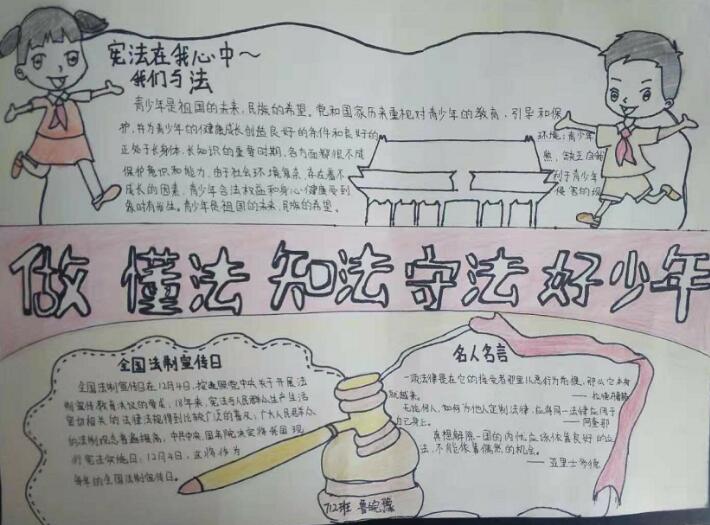 宪法在我心中~
我们与法
青少年是祖国的未来,民族的希望。党和国家历来重视对青少年的教育,引导和保
护,并为青少年的健康成长创造良好的条件和良好的环境;青少年
正处于长身体,长知识的重要时期,各方面都很不成熟,缺乏自我
保护意识和能力,由于社会环境复杂,存在着不利于青少年
成长的因素,青少年合法权益和身心健康受到侵害的现
象时有发生。青少年是祖国的未来,民族的希望。
做懂法知法守法好少年
全国法制宣传日
全国法制宣传日在12月4日,按照党中央关于开展法
制宣传教育决议的要求,18年来,宪法与人民群众生产生活
密切相关的法律法规得到比较广泛的普及,广大人民群众
的法制观念普遍提高,中共中央,国务院决定将我国现
行宪法实施日,12月4日,这将作为
每年的全国法制宣传日。
名人名言
一项法律是在它的接受者那里
就越来。
无论何人,如何为他人制定法律,应将同一法律应用于
自己身上。
——阿奎那
真想解除一国的内忧应该依靠良好的立
法,不能依靠偶然的机会。
——亚里士多德
712班